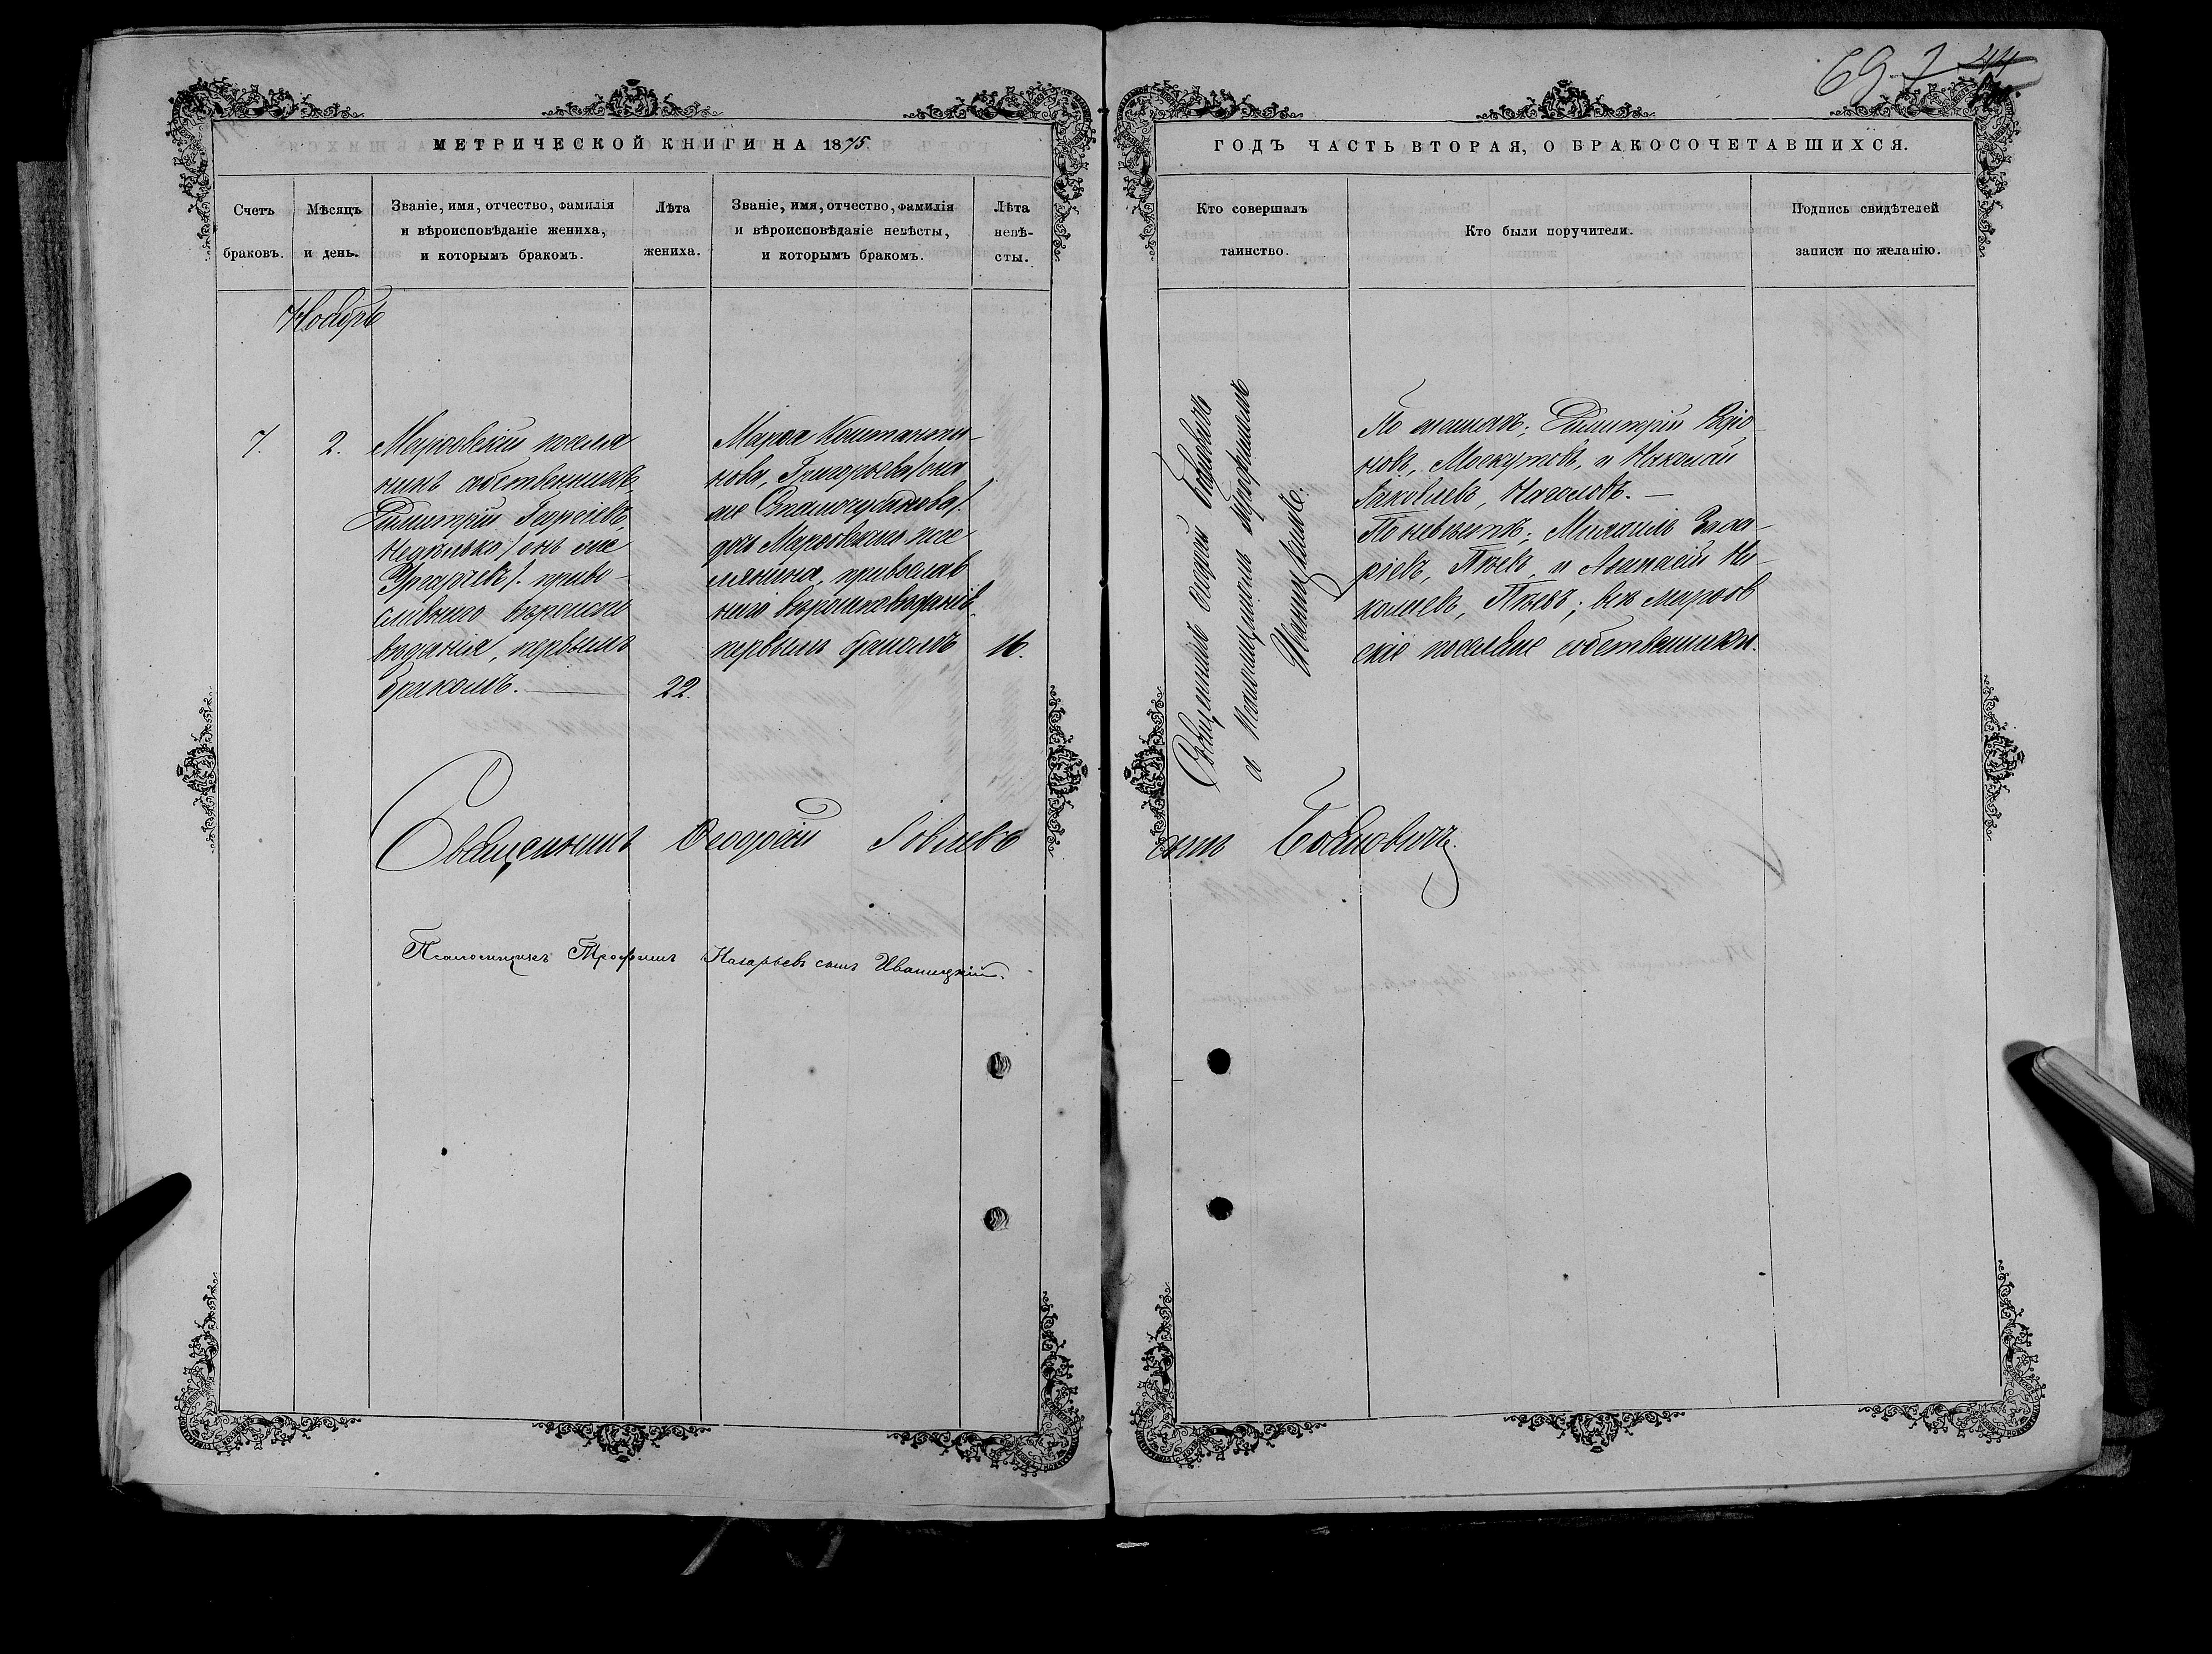 69
МЕТРИЧЕСКОЙ КНИГИ НА 1875.
ГОДЪ ЧАСТЬ ВТОРАЯ, О БРАКОСОЧЕТАВШИХСЯ.
Счетъ
браковъ.
Мѣсяцъ
и день.
Званіе, имя, отчество, фамилія
и вѣроисповѣданіе жениха,
и которымъ бракомъ.
Лѣта
жениха.
Званіе, имя, отчество, фамилія
и вѣроисповѣданіе невѣсты,
и которымъ бракомъ.
Лѣта
невѣ-
сты.
Кто совершалъ
таинство.
Кто были поручители.
Подпись свидѣтелей
записи по желанію.
Ноябрь
7.
2.
поселя
нинъ собственникъ,
Димитрій Георгіевъ,
онъ же
право-
славнаго вѣроиспо
вѣданія, первымъ
бракомъ.
22.
Марѳа Константи-
нова, Григорьева /она
же
дочь посе
лянина, православ
наго вѣроисповѣданія
первымъ бракомъ
16.
Священникъ
съ Псаломщикомъ Трофимомъ
Иваницкимъ.
По женихѣ; Димитрій
новъ, и Николай
Яковлевъ,
По невѣстѣ; Михаилъ Заха-
ріевъ, и Аѳанасій Ни-
колаевъ, всѣ
скіе поселяне собственники.
Священникъ Ѳеодосій Іовлевъ
сынъ
Псаломщикъ Трофимъ Назарьевъ сынъ Иваницкій.